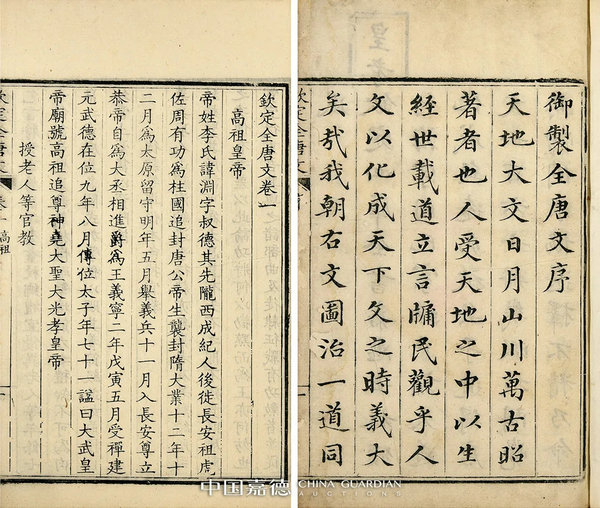 御製全唐文序
天地大文日月山川萬古昭
著者也人受天地之中以生
經世載道立言牖民觀乎人
文以化成天下文之時義大
矣哉我朝右文圖治一道同
欽定全唐文
欽定全唐文卷一
高祖皇帝
帝姓李氏諱淵字叔德其先隴西成紀人後徙長安祖虎
佐周有功為柱國追封唐公帝生襲封隋大業十二年十
二月為太原留守明年五月舉義兵十一月入長安尊立
恭帝自為大丞相進爵為王義寧二年戊寅五月受禪建
元武德在位九年八月傳位太子年七十一諡曰大武皇
帝廟號高祖追尊神堯大聖大光孝皇帝
授老人等官教
欽定全唐文
卷一
高祖
一
中国嘉德
CHINA GUARDIAN
AUCTIONS